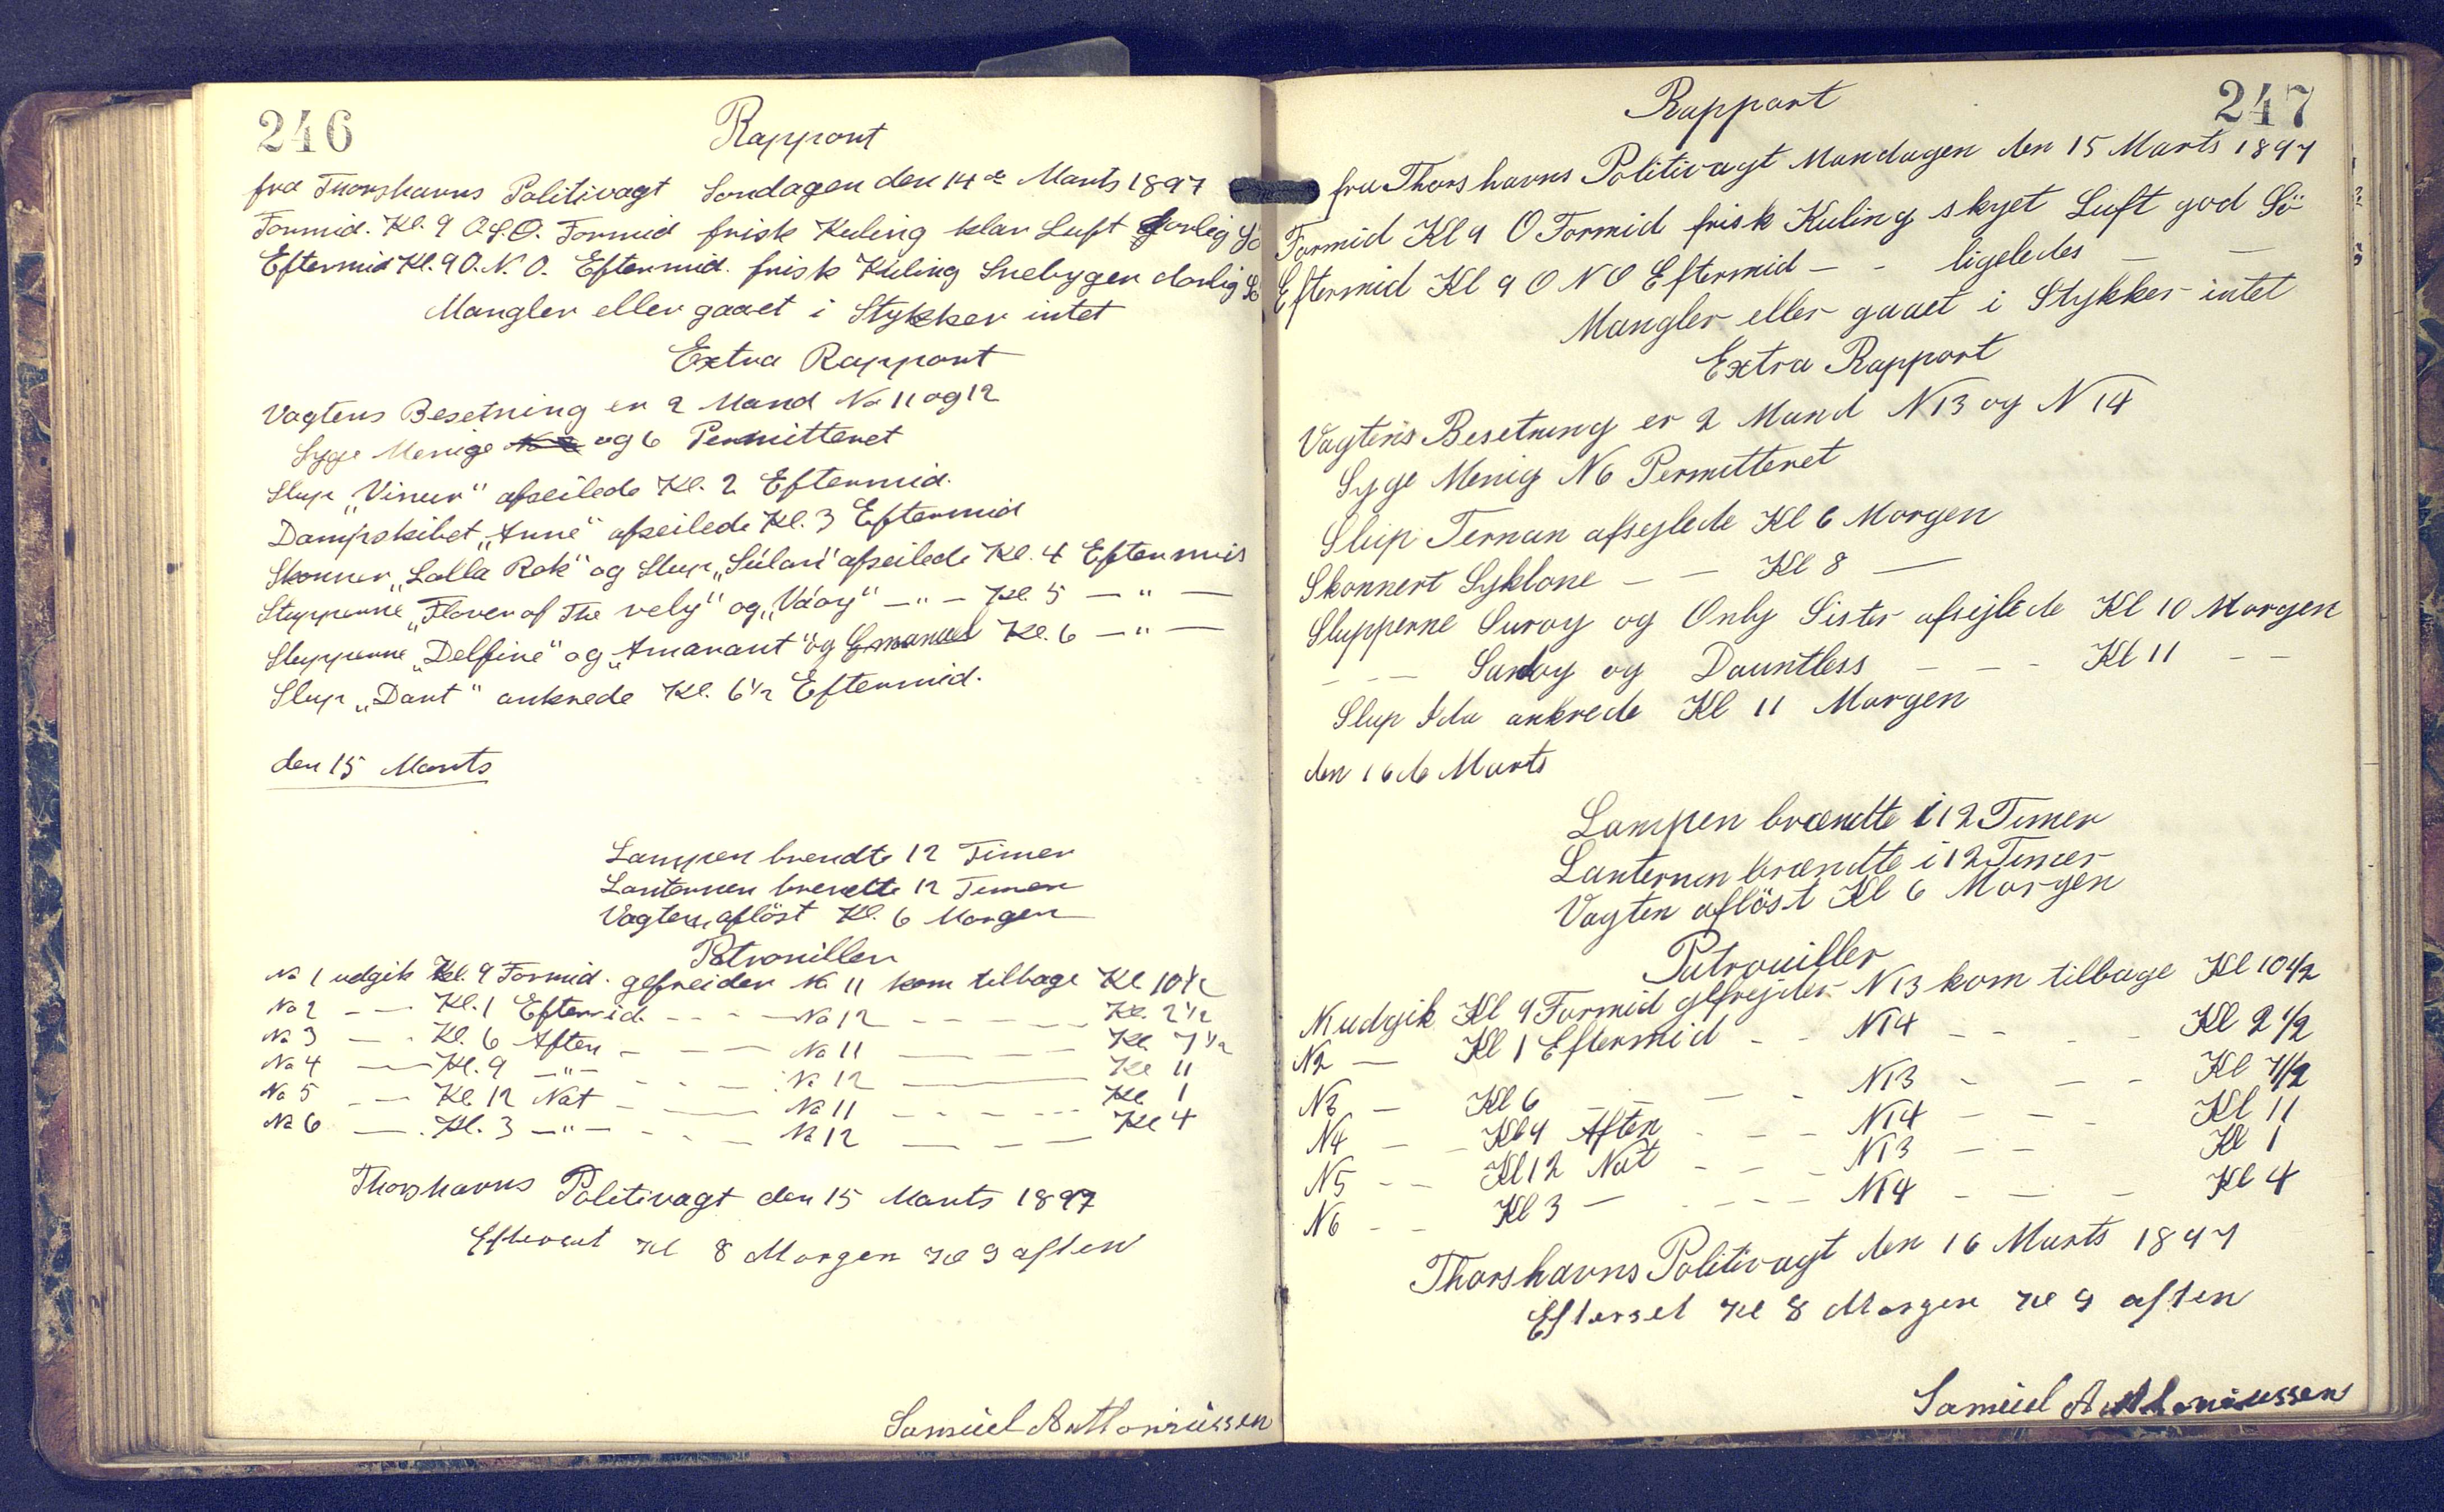 246
Rapport
fra Thorshavns Politivagt Søndagen den 14de Marts 1897
Formid. Kl. 9 O.S.O. Formid frisk Kuling klar Luft dorlig Sö
Eftermid Kl. 9 O.N.O. Eftermid. frisk Kuling Snebyger dorlig Sö
Mangler eller gaaet i Stykker intet
Extra Rapport
Vagtens Besetning er 2 Mand No 11 og 12
Syge Menige og 6 Permitteret
Slup „Vinur“ afseilede Kl. 2 Eftermid.
Dampskibet „Anne“ afseilede Kl. 3 Eftermid
Skonner „Lalla Rok“ og Slup „Súlan“ afseilede Kl. 4 Eftermid
Slupperne „Flover of The vely“ og „Váoy“ —"— Kl. 5 —"—
Slupperne „Delfine“ og „Amarant“ og Emanuel Kl. 6 —"—
Slup „Dart“ ankrede Kl. 6½ Eftermid.
den 15 Marts
Lampen brendte 12 Timer
Lanternen brendte 12 Timer
Vagten aflöst Kl. 6 Morgen
Patrouiller
No 1 udgik Kl. 9 Formid. gefreider No 11 kom tilbage Kl 10½
No 2 — — Kl. 1 Eftermid. - - — No 12 — — — Kl. 2½
No 3 — - Kl. 6 Aften - — — No 11 — — — Kl 7½
No 4 — — Kl. 9 —"— - - — No 12 — — Kl 11
No 5 - — Kl 12 Nat - — — No 11 - - - - Kl 1
No 6 — . Kl. 3 —"— - - — No 12 — — — Kl 4
Thorshavns Politivagt den 15 Marts 1897
Efterset Kl 8 Morgen Kl 9 aften
Samúel Anthoniússen
247
Rapport
fra Thorshavns Politivagt Mandagen den 15 Marts 1897
Formid Kl 9 O Formid frisk Kuling skyet Luft god Sö
Eftermid Kl 9 O N O Eftermid — - ligeledes — —
Mangler eller gaaet i Stykker intet
Extra Rapport
Vagtens Besetning er 2 Mand N 13 og N 14
Syge Menig N 6 Permitteret
Slup Ternan afsejlede Kl 6 Morgen
Skonnert Syklone — — Kl 8 —
Slupperne Suroy og Only Sister afsejlede Kl 10 Morgen
- - — Sandoy og Dauntless — — - Kl 11 — —
Slup Ida ankrede Kl 11 Morgen
den 16de Marts
Lampen brændte i 12 Timer
Lanternen brændte i 12 Timer
Vagten aflöst Kl 6 Morgen
Patrouiller
N1 udgik Kl 9 Formid gefrejder N13 kom tilbage Kl 10½
N2 — Kl 1 Eftermid - - N14 - - - - Kl 2½
N3 — Kl 6 — — - N13 - - - Kl 7½
N4 — - Kl 9 Aften - - - N14 — — - Kl 11
N5 - - Kl 12 Nat - — - N13 — — Kl 1
N6 - - Kl 3 — - - — N14 - — - Kl 4
Thorshavns Politivagt den 16 Marts 1897
Efterset Kl 8 Morgen Kl 9 aften
Samúel Anthoniussen